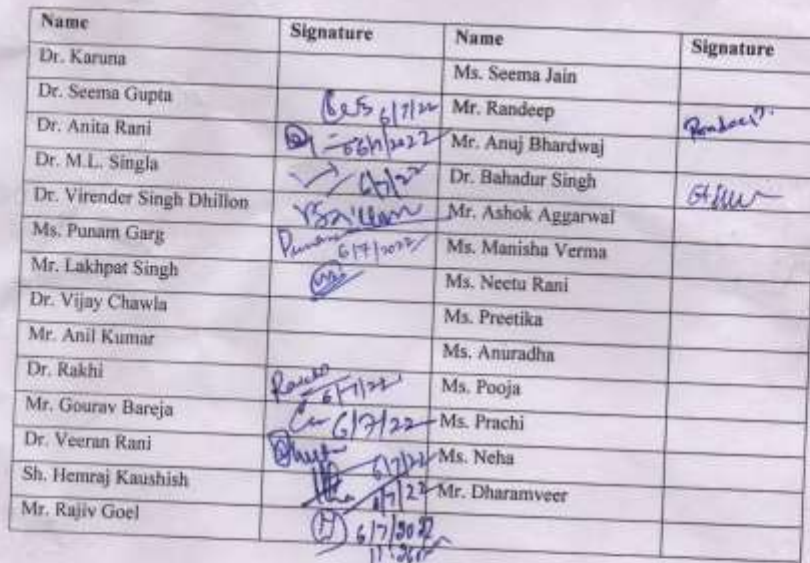 Name Signature Name Signature
Dr. Karuna Ms. Seema Jain
Dr. Seema Gupta 6/7/22 Mr. Randeep Randeep
Dr. Anita Rani Mr. Anuj Bhardwaj
Dr. M.L. Singla Dr. Bahadur Singh
Dr. Virender Singh Dhillon Mr. Ashok Aggarwal
Ms. Punam Garg Punam 6/7/2022 Ms. Manisha Verma
Mr. Lakhpat Singh Ms. Neetu Rani
Dr. Vijay Chawla Ms. Preetika
Mr. Anil Kumar Ms. Anuradha
Dr. Rakhi 6/7/22 Ms. Pooja
Mr. Gourav Bareja 6/7/22 Ms. Prachi
Dr. Veeran Rani 6/7/22 Ms. Neha
Sh. Hemraj Kaushish 6/7/22 Mr. Dharamveer
Mr. Rajiv Goel 6/7/2022